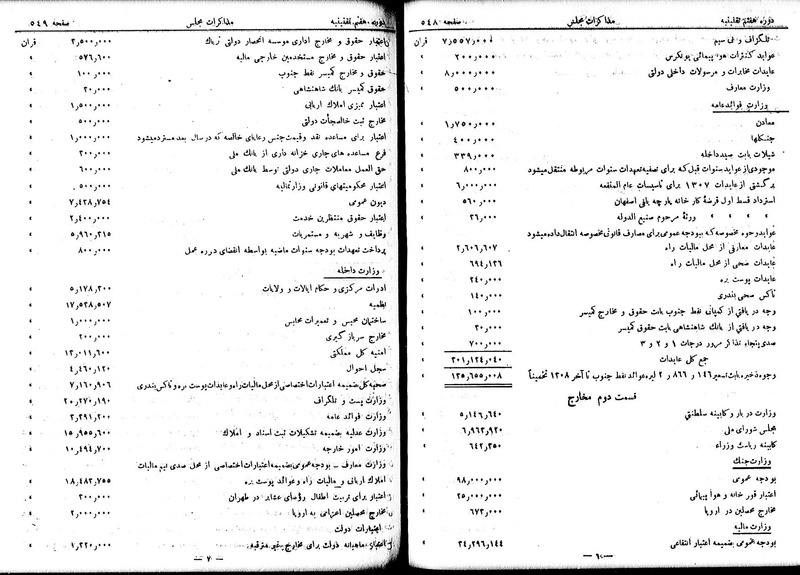 دوره هفتم تقنینیه مذاکرات مجلس صفحه ۵۴۸
تلگراف و بی سیم ۷٫۵۵۷٫۰۰۰ قران
عواید کنترات هواپیمائی یونکرس ۲۰۰٫۰۰۰ »
عایدات مخابرات و مرسولات داخلی دولتی ۸٫۰۰۰٫۰۰۰ »
وزارت معارف ۵۰۰٫۰۰۰ »
وزارت فوائد عامه
معادن ۱٫۷۵۰٫۰۰۰ »
جنگلها ۴۰۰٫۰۰۰ »
شیلات بابت صید داخله ۳۳۹٫۰۰۰ »
موجودی از عواید سنوات قبل که برای تصفیه تعهدات سنوات مربوطه منتقل میشود ۸۰۰٫۰۰۰ »
برگشتی از عایدات ۱۳۰۷ برای تاسیسات عام المنفعه ۶٫۰۰۰٫۰۰۰ »
استرداد قسط اول قرضهٔ کارخانه پارچه بافی اصفهان ۵۶۰٫۰۰۰ »
» » » » ورثهٔ مرحوم صنیع الدوله ۲۶٫۰۰۰ »
عواید وجوه مخصوصه که ببودجه عمومی برای مصارف قانونی مخصوصه انتقال داده میشود
عایدات معارفی از محل مالیات راه ۲٫۶۰۶٫۶۰۷ »
عایدات صحی از محل مالیات راه ۶۹۴٫۱۳۶ »
عایدات پوست بره ۲۴۰٫۰۰۰ »
تاکس صحی بندری ۱۴۰٫۰۰۰ »
وجه دریافتی از کمپانی نفط جنوب بابت حقوق و مخارج کمیسر ۱۰۰٫۰۰۰ »
وجه دریافتی از بانک شاهنشاهی بابت حقوق کمیسر ۲۰٫۰۰۰ »
صدی پنجاه تذاکر مرور درجات ۱ و ۲ و ۳ ۷۰۰٫۰۰۰ »
جمع کل عایدات ۳۰۱٫۱۲۴٫۰۴۰ »
وجوه ذخیره بابت سعیر ۱۴۶ و ۸۶۶ و ۲ لیره عوائد نفط جنوب تا آخر ۱۳۰۸ تخمیناً ۱۳۵٫۶۵۵٫۰۰۸ »
قسمت دوم مخارج
وزارت دربار و کابینه سلطنتی ۵٫۱۴۶٫۶۴۰ »
مجلس شورای ملی ۶٫۹۶۳٫۹۲۰ »
کابینه ریاست وزراء ۶۴۲٫۳۵۰ »
وزارت جنگ
بودجه عمومی ۹۸٫۰۰۰٫۰۰۰ »
اعتبار قورخانه و هواپیمائی ۲۵٫۰۰۰٫۰۰۰ »
مخارج محصلین در اروپا ۶۷۳٫۰۰۰ »
وزارت مالیه
بودجه عمومی بضمیمه اعتبار انتفاعی ۲۴٫۲۹۶٫۱۴۴ »
— ۶ —
دوره هفتم تقنینیه مذاکرات مجلس صفحه ۵۴۹
اعتبار حقوق و مخارج اداری موسسه انحصار دولتی تریاک ۲٫۵۰۰٫۰۰۰ قران
اعتبار حقوق و مخارج مستخدمین خارجی مالیه ۵۷۶٫۶۰۰ »
حقوق و مخارج کمیسر نفط جنوب ۱۰۰٫۰۰۰ »
حقوق کمیسر بانک شاهنشاهی ۲۰٫۰۰۰ »
اعتبار ممیزی املاک اربابی ۱٫۵۰۰٫۰۰۰ »
مخارج ثبت خالصجات دولتی ۵۰۰٫۰۰۰ »
اعتبار برای مساعده نقد وقیمت جنس رعایای خالصه که در سال بعد مسترد میشود ۱٫۰۰۰٫۰۰۰ »
فرع مساعده های جاری خزانه داری از بانک ملی ۲۰۰٫۰۰۰ »
حق العمل معاملات جاری دولتی توسط بانک ملی ۶۰۰٫۰۰۰ »
اعتبار محکومیتهای قانونی وزارتمالیه ۵۰۰٫۰۰۰ »
دیون عمومی ۷٫۴۳۸٫۷۵۴ »
اعتبار حقوق منتظرین خدمت ۲٫۴۰۰٫۰۰۰ »
وظایف و شهریه و مستمریات ۵٫۹۶۰٫۳۱۵ »
پرداخت تعهدات بودجه سنوات ماضیه بواسطه انقضای دوره عمل ۸۰۰٫۰۰۰ »
وزارت داخله
ادوات مرکزی و حکام ایالات و ولایات ۵٫۱۷۸٫۲۰۰ »
نظمیه ۱۷٫۵۳۸٫۵۰۷ »
ساختمان محبس و تعمیرات محابس ۱٫۰۰۰٫۰۰۰ »
مخارج سربازگیری ۲۰۰٫۰۰۰ »
امنیه کل مملکتی ۱۳٫۰۱۱٫۶۰۰ »
سجل احوال ۴٫۴۶۰٫۱۲۰ »
صحیه کل بضمیمه اعتبارات اختصاصی از محل مالیات راه و عایدات پوست بره و تاکس بندری ۷٫۱۶۰٫۹۰۶ »
وزارت پست و تلگراف ۲۰٫۲۷۰٫۱۹۰ »
وزارت فوائد عامه ۳٫۲۹۱٫۲۰۰ »
وزارت عدلیه بضمیمه تشکیلات ثبت اسناد و املاک ۱۵٫۹۵۵٫۶۰۰ »
وزارت امور خارجه ۱۰٫۴۹۴٫۷۰۰ »
وزارت معارف ـ بودجه عمومی بضمیمه اعتبارات اختصاصی از محل صدی نیم مالیات
املاک اربابی و مالیات راه و عوائد پوست بره ۱۸٫۴۸۳٫۷۵۵ »
اعتبار برای تربیت اطفال رؤسای عشایر در طهران ۲۰۰٫۰۰۰ »
مخارج محصلین اعزامی به اروپا ۲٫۰۰۰٫۰۰۰ »
اعتبارات دولت
اعتبار ماهیانه دولت برای مخارج غیر مترقبه ۱٫۲۲۰٫۰۰۰ »
— ۷ —